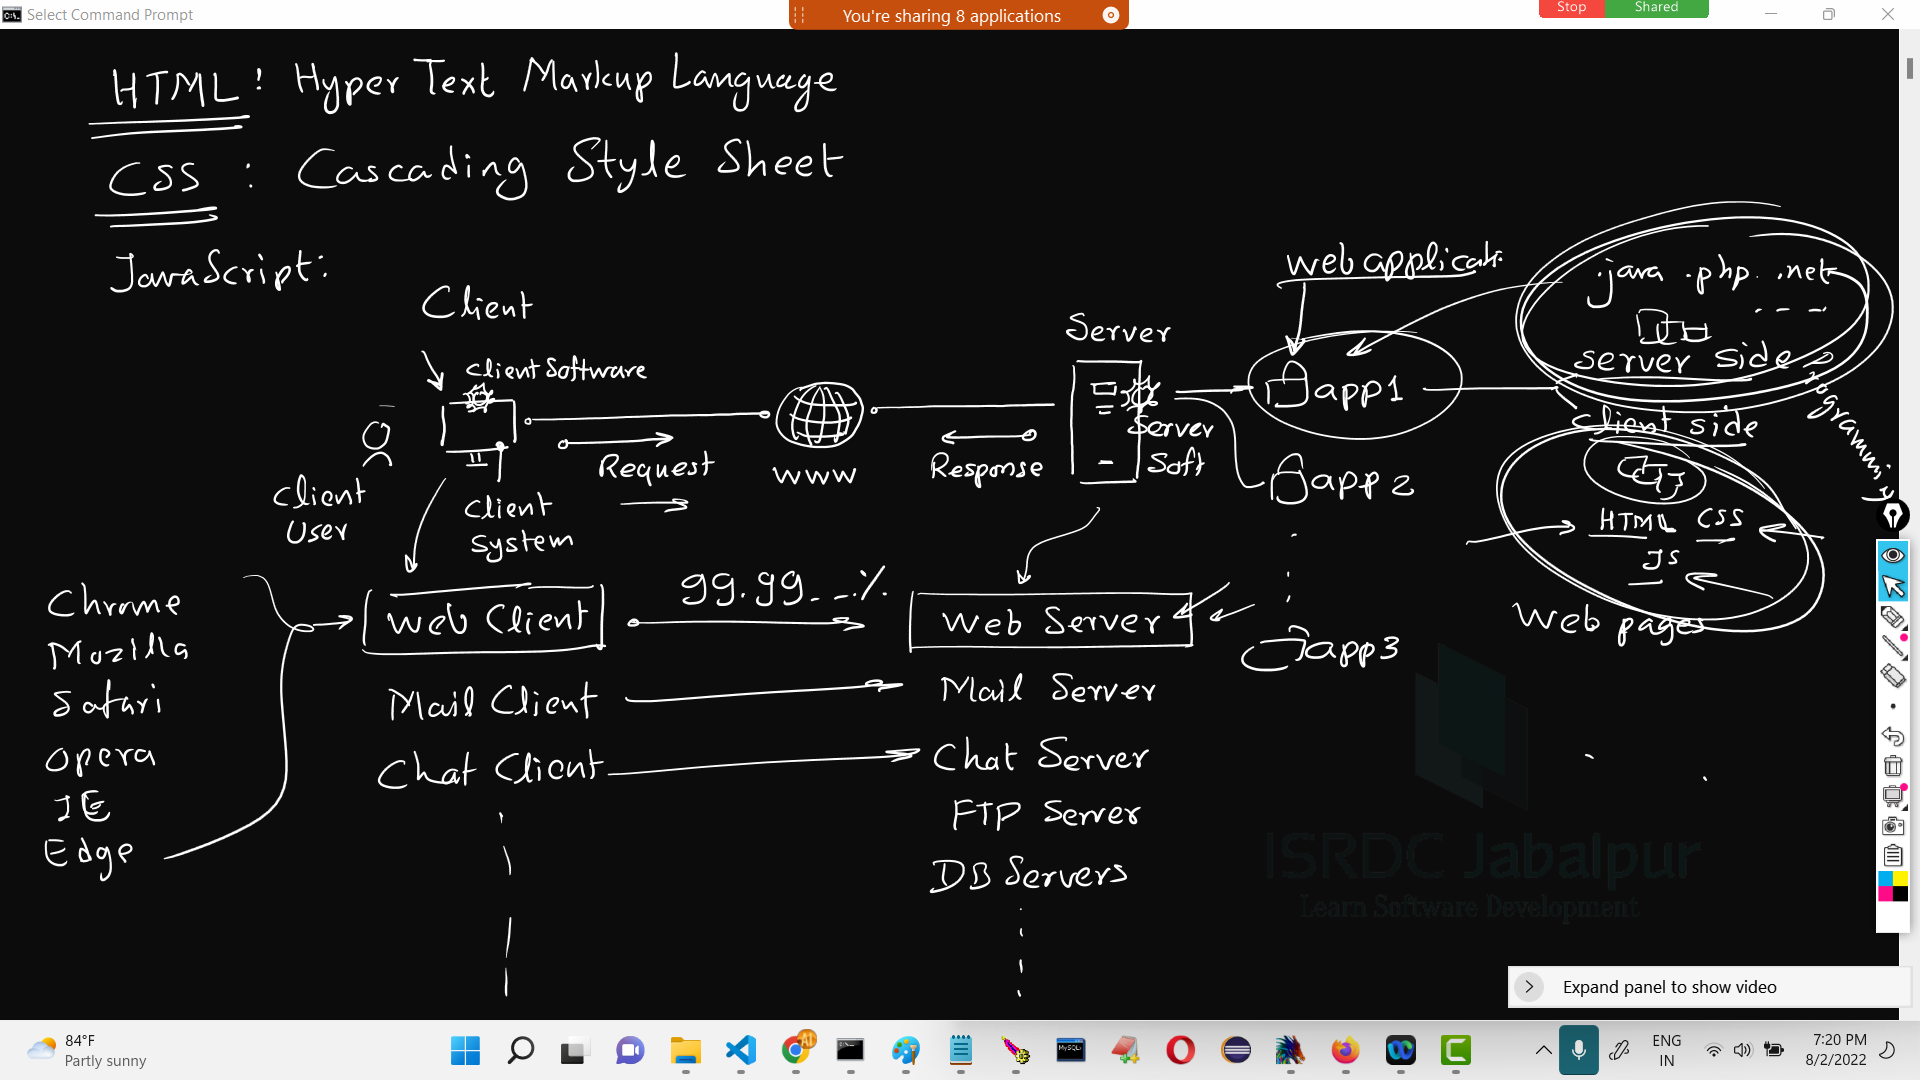 Select Command Prompt
You're sharing 8 applications
Stop Shared
HTML : Hyper Text Markup Language
CSS : Cascading Style Sheet
JavaScript:
Client
Client Software
Client User
Client System
Request
WWW
Response
Server
Server Soft
web applicati
app1
app2
app3
.java .php .net
server side
Programming
client side
HTML CSS
JS
Web pages
Chrome
Mozilla
Safari
Opera
IE
Edge
Web Client
99.99_ _.%
Web Server
Mail Client
Mail Server
Chat Client
Chat Server
FTP Server
DB Servers
ISRDC Jabalpur
Learn Software Development
Expand panel to show video
84°F
Partly sunny
ENG
IN
7:20 PM
8/2/2022